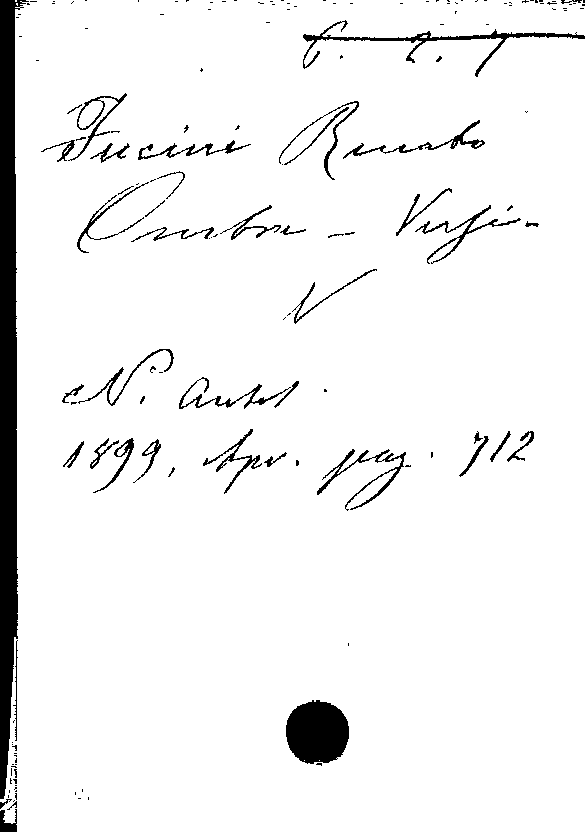 6. 2. 7
Fucini Renato
Ombre - Versi -
V
N. Antol.
1899, Apr. pag. 712